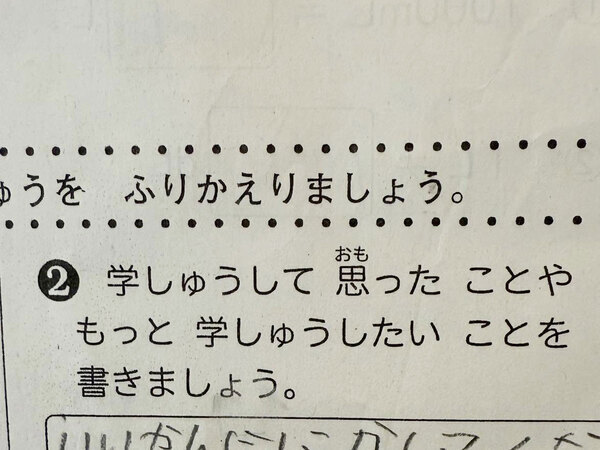 ゅうを ふりかえりましょう。
❷ 学しゅうして 思った ことや
おも
もっと 学しゅうしたい ことを
書きましょう。